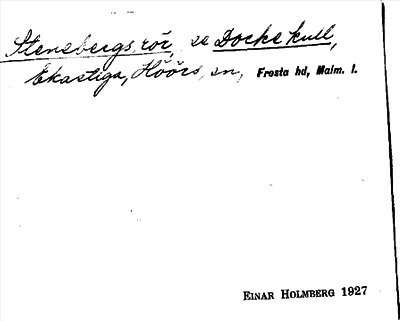 Stensbergs rör, se Docke kull,
Ekastiga, Höörs sn, Frosta hd, Malm. l.
EINAR HOLMBERG 1927